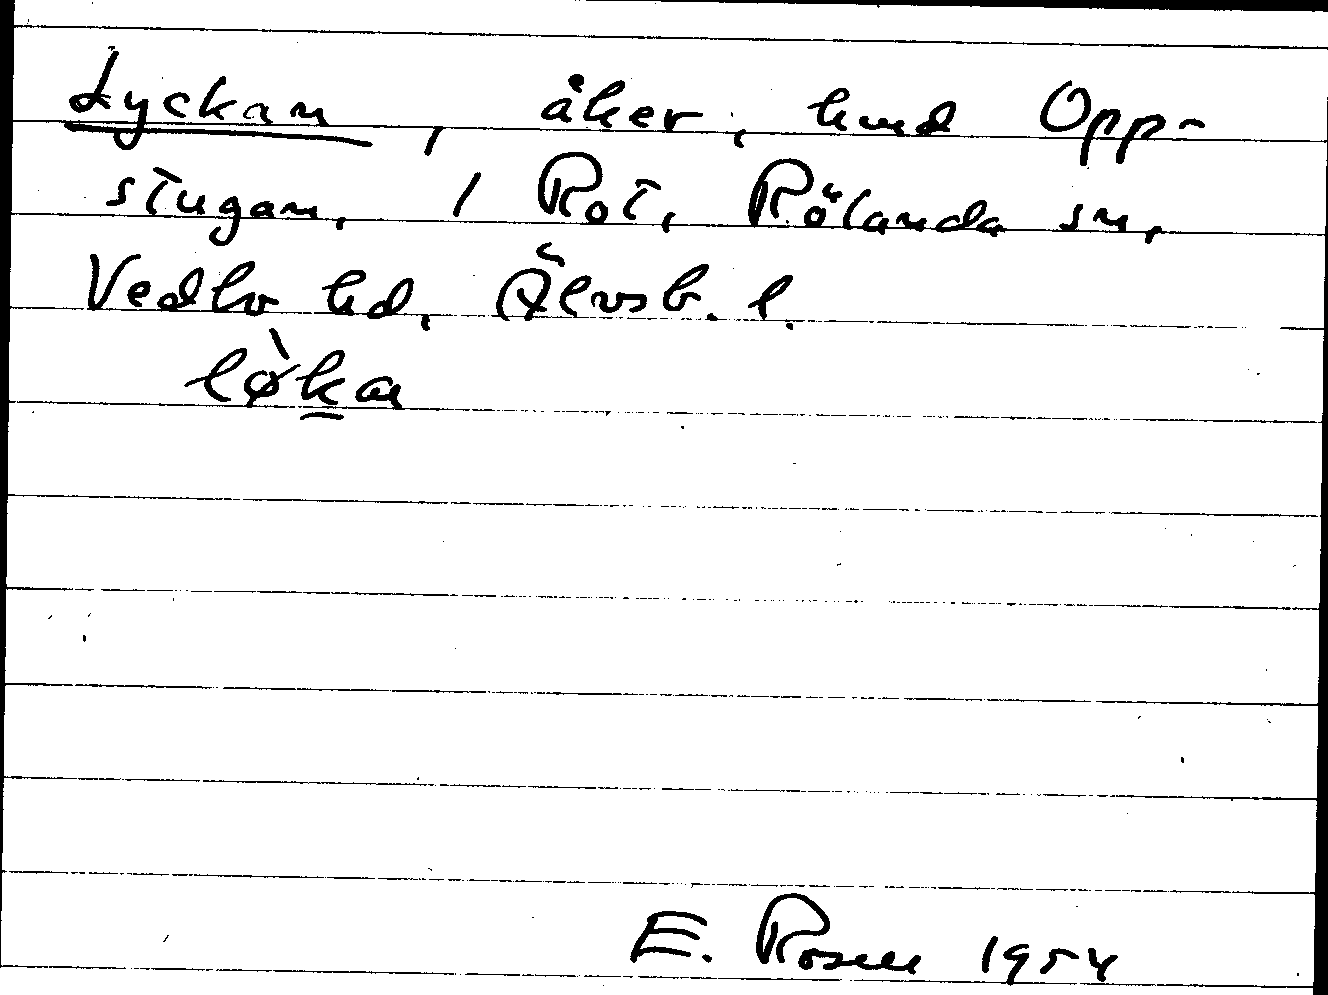 Lyckan, åker, hmd Opp-
stugan, 1 Rot, Rölanda sn,
Vedbo hd, Älvsb. l.
lø̀kan
E. Rosell 1954